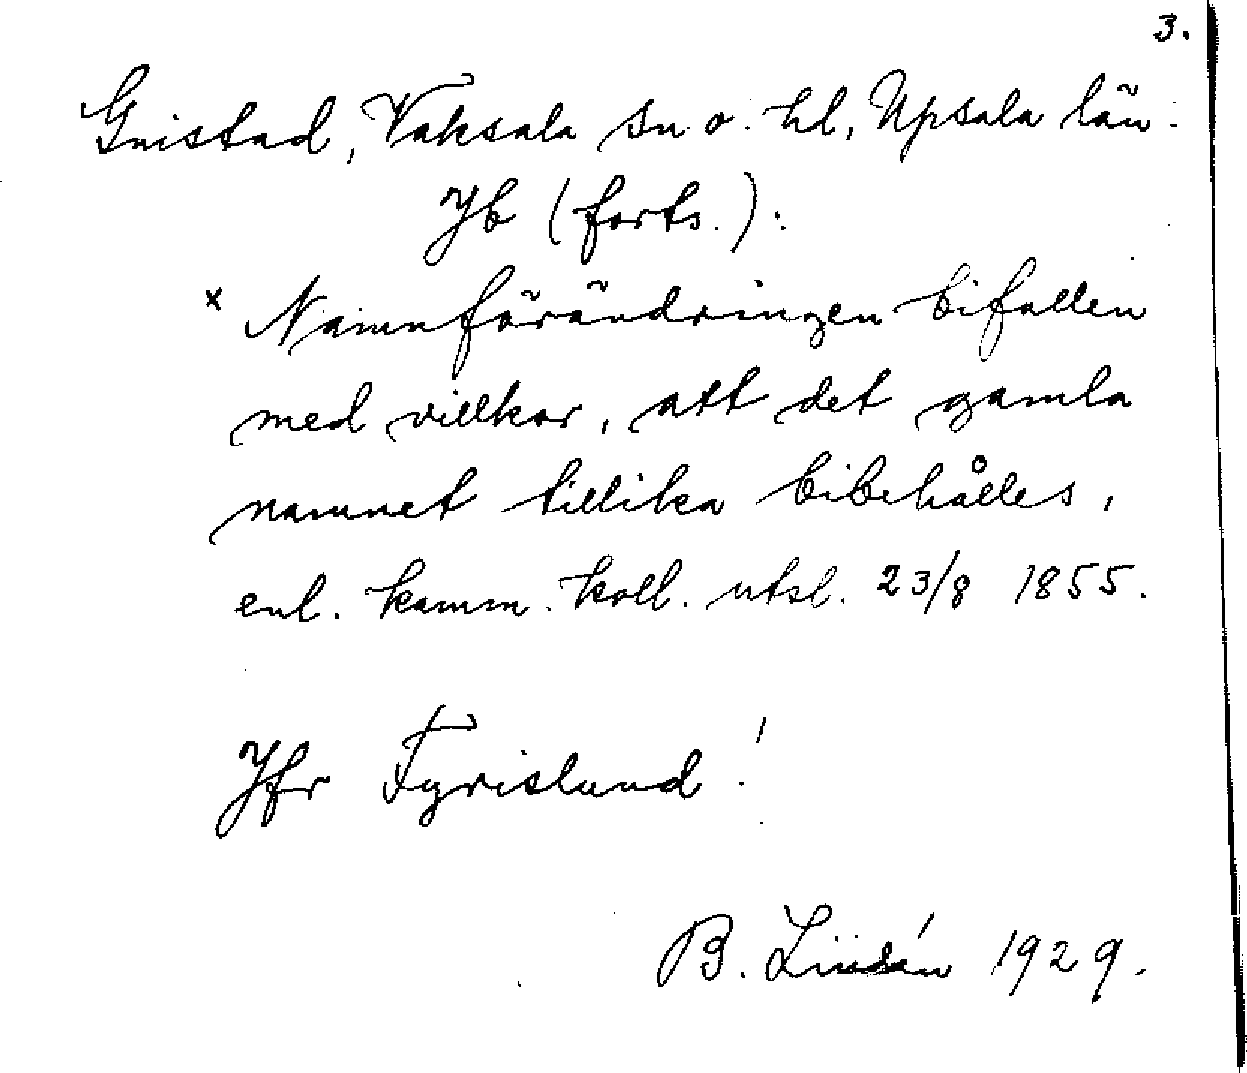 3.
Gnistad, Vaksala sn o. hd, Upsala län.
Jb (forts.):
x Namnförändringen bifallen
med villkor, att det gamla
namnet tillika bibehålles,
enl. kamm. koll. utsl. 23/8 1855.
Jfr Fyrislund!
B. Lindén 1929.